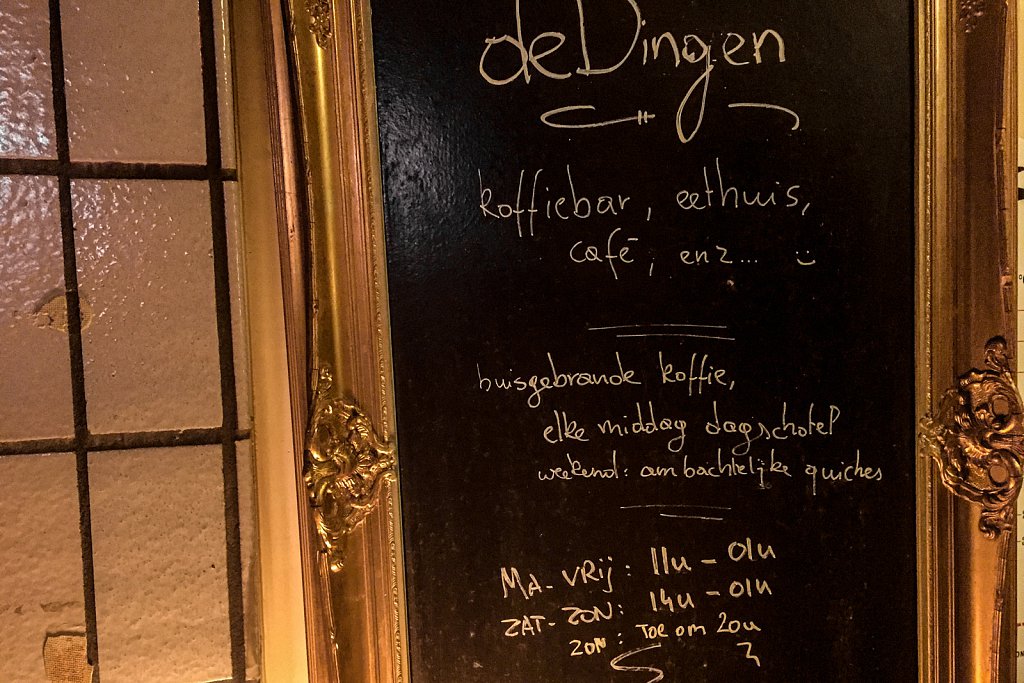 deDingen
koffiebar, eethuis,
café, enz... :)
huisgebrande koffie,
elke middag dagschotel
weekend: ambachtelijke quiches
MA-VRIJ: 11u - 01u
ZAT-ZON: 14u - 01u
ZON: TOE om 20u